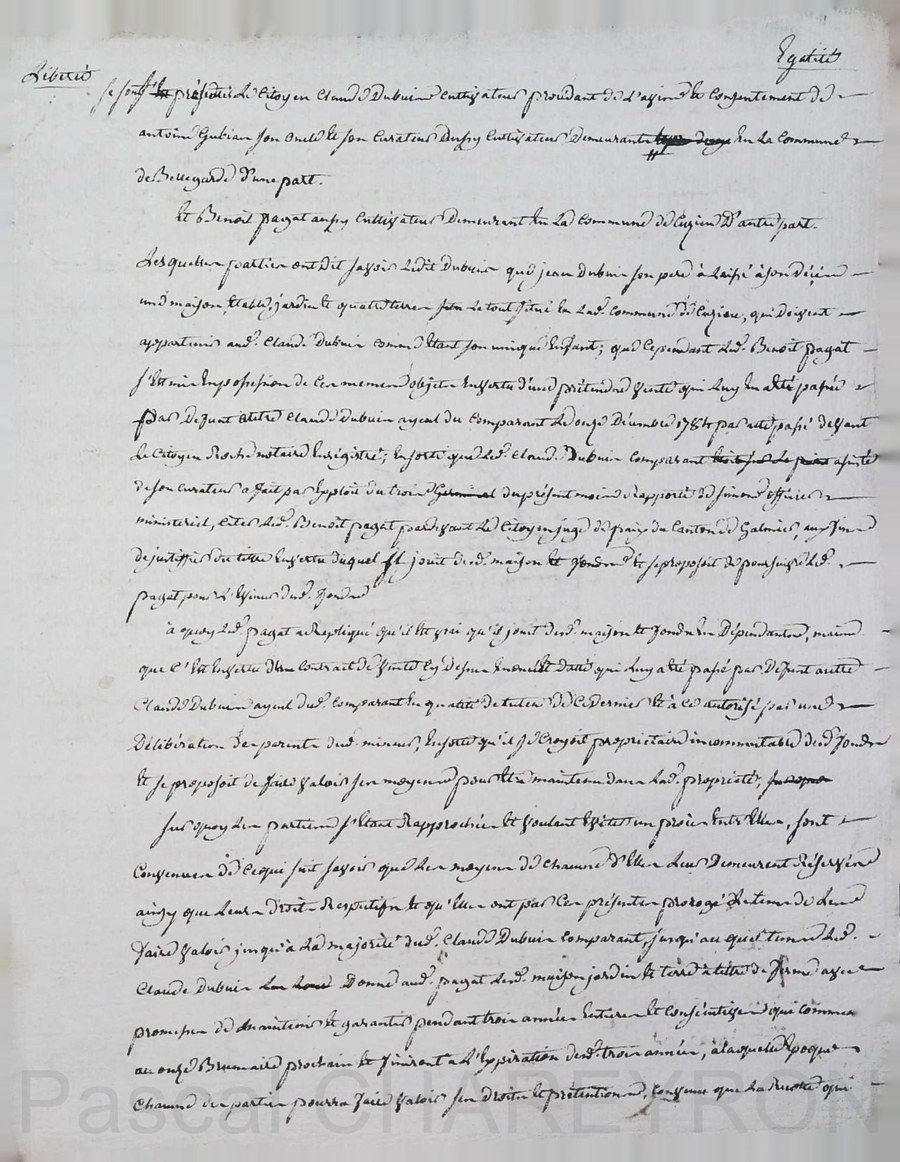 Liberté Egalité
se sont présentés Le Citoyen Claude Dubuis Cultivateur procédant de L'avis et Consentement de
antoine Gubian son oncle et son Curateur Cultivateur Demeurants En La Commune
de Bellegarde d'une part.
Et Benoit payat aussy Cultivateur Demeurant En Lad Commune de Cuzieu D'autre part.
Lesquelles parties ont dit savoir Ledit Dubuis que jean Dubuis son pere à Laissé à son décès
une maison, Etable, jardin et quatre terres Le tout situé En Lad. Commune de Cuzieu, qui doivent
appartenir aud. Claude Dubuis comme Etant son unique Enfant; que Cependant Led. Benoit payat
s'Est mis En possession de Ces memes objets En vertu d'une prétendue vente qui Luy En a été passée
par Defunt autre Claude Dubuis ayeul du Comparant Le onze Décembre 1784 par acte passé devant
Le Citoyen notaire Enregistré; En sorte que Led. Claude Dubuis Comparant assisté
de son Curateur a fait par Exploit du trois Germinal du présent mois Rapporté de officier
ministeriel, Citer Led. Benoit payat pardevant Le Citoyen juge de paix du Canton de Galmier, aux fins
de justiffier du titre En vertu duquel Il jouit desd. maison et fonds Et se proposoit de poursuivre Led.
payat pour L' desd. fonds
à quoy Led. payat a Repliqué qu'il Est vrai qu'il jouit desd. maison et fonds En Dépendants, mais
que C'Est En vertu d'un Contrat de vente Cy dessus Enoncé et daté qui Luy a été passé par Defunt autre
Claude Dubuis ayeul dud. Comparant En qualité de tuteur de Ce Dernier Et à ce autorisé par une
Délibération de parents dud. mineur, En sorte qu'il se Croyoit propriétaire incommutable desd. fonds
Et se proposoit de faire valoir ses moyens pour être maintenu dans Lad. propriété,
Sur quoy Les parties s'Etant Rapprochées Et voulant Eviter un procès Entr'Elles, sont
Convenues de Ce qui suit savoir que Les moyens de Chacune d'Elles Leur Demeurent Réservés
ainsy que Leurs Droits Respectifs Et qu'Elles ont par Ces présentes prorogé Le tems de Les
faire valoir jusqu'à La majorité dud. Claude Dubuis Comparant, jusqu'au quel tems Led.
Claude Dubuis Donne aud. payat Lesd. maison jardin et terres à titre de ferme avec
promesse de maintenir et garantir pendant trois années Entieres Et Consécutives qui Commen
au onze Brumaire prochain Et finiront a L'Expiration desd. trois années, à laquelle Epoque
Chacune des parties pourra faire valoir ses droits et prétentions, Convenu que La Récolte qui
Pascal CHAREYRON